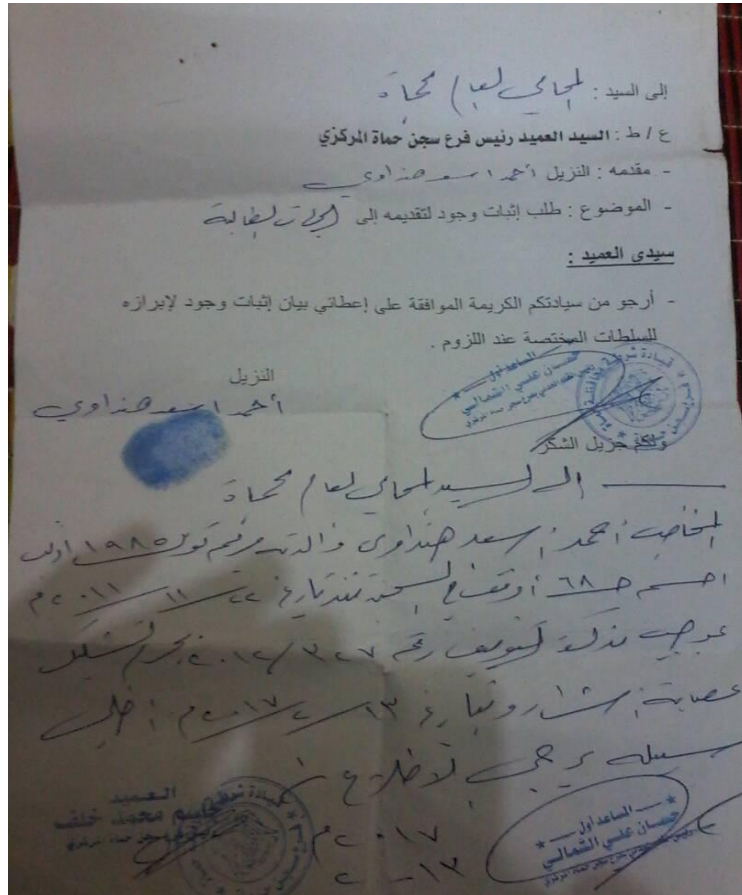 إلى السيد : المحامي العام بحماة
ع / ط : السيد العميد رئيس فرع سجن حماة المركزي
- مقدمه : النزيل أحمد اسعد هنداوي
- الموضوع : طلب إثبات وجود لتقديمه إلى الجهات الطالبة
سيدي العميد :
- أرجو من سيادتكم الكريمة الموافقة على إعطائي بيان إثبات وجود لإبرازه
للسلطات المختصة عند اللزوم .
المساعد أول
حسان علي الشمالي
النزيل
أحمد اسعد هنداوي
ولكم جزيل الشكر
إلى السيد المحامي العام بحماة
أحمد اسعد هنداوي والدته مريم تولد ١٩٨٥
٦٨ أوقف في السجن منذ تاريخ ٢٢ / ١١ / ٢٠١١ م
بموجب مذكرة التوقيف رقم ٣٢٧ / ٢٠١٢ بجرم تشكيل
عصابة وبتاريخ ١٣ / ٢ / ٢٠١٧ م أخلي
سبيله يرجى الاطلاع
العميد
جاسم محمد خلف
٢٠١٧ م
١٣ ٢
المساعد أول
حسان علي الشمالي